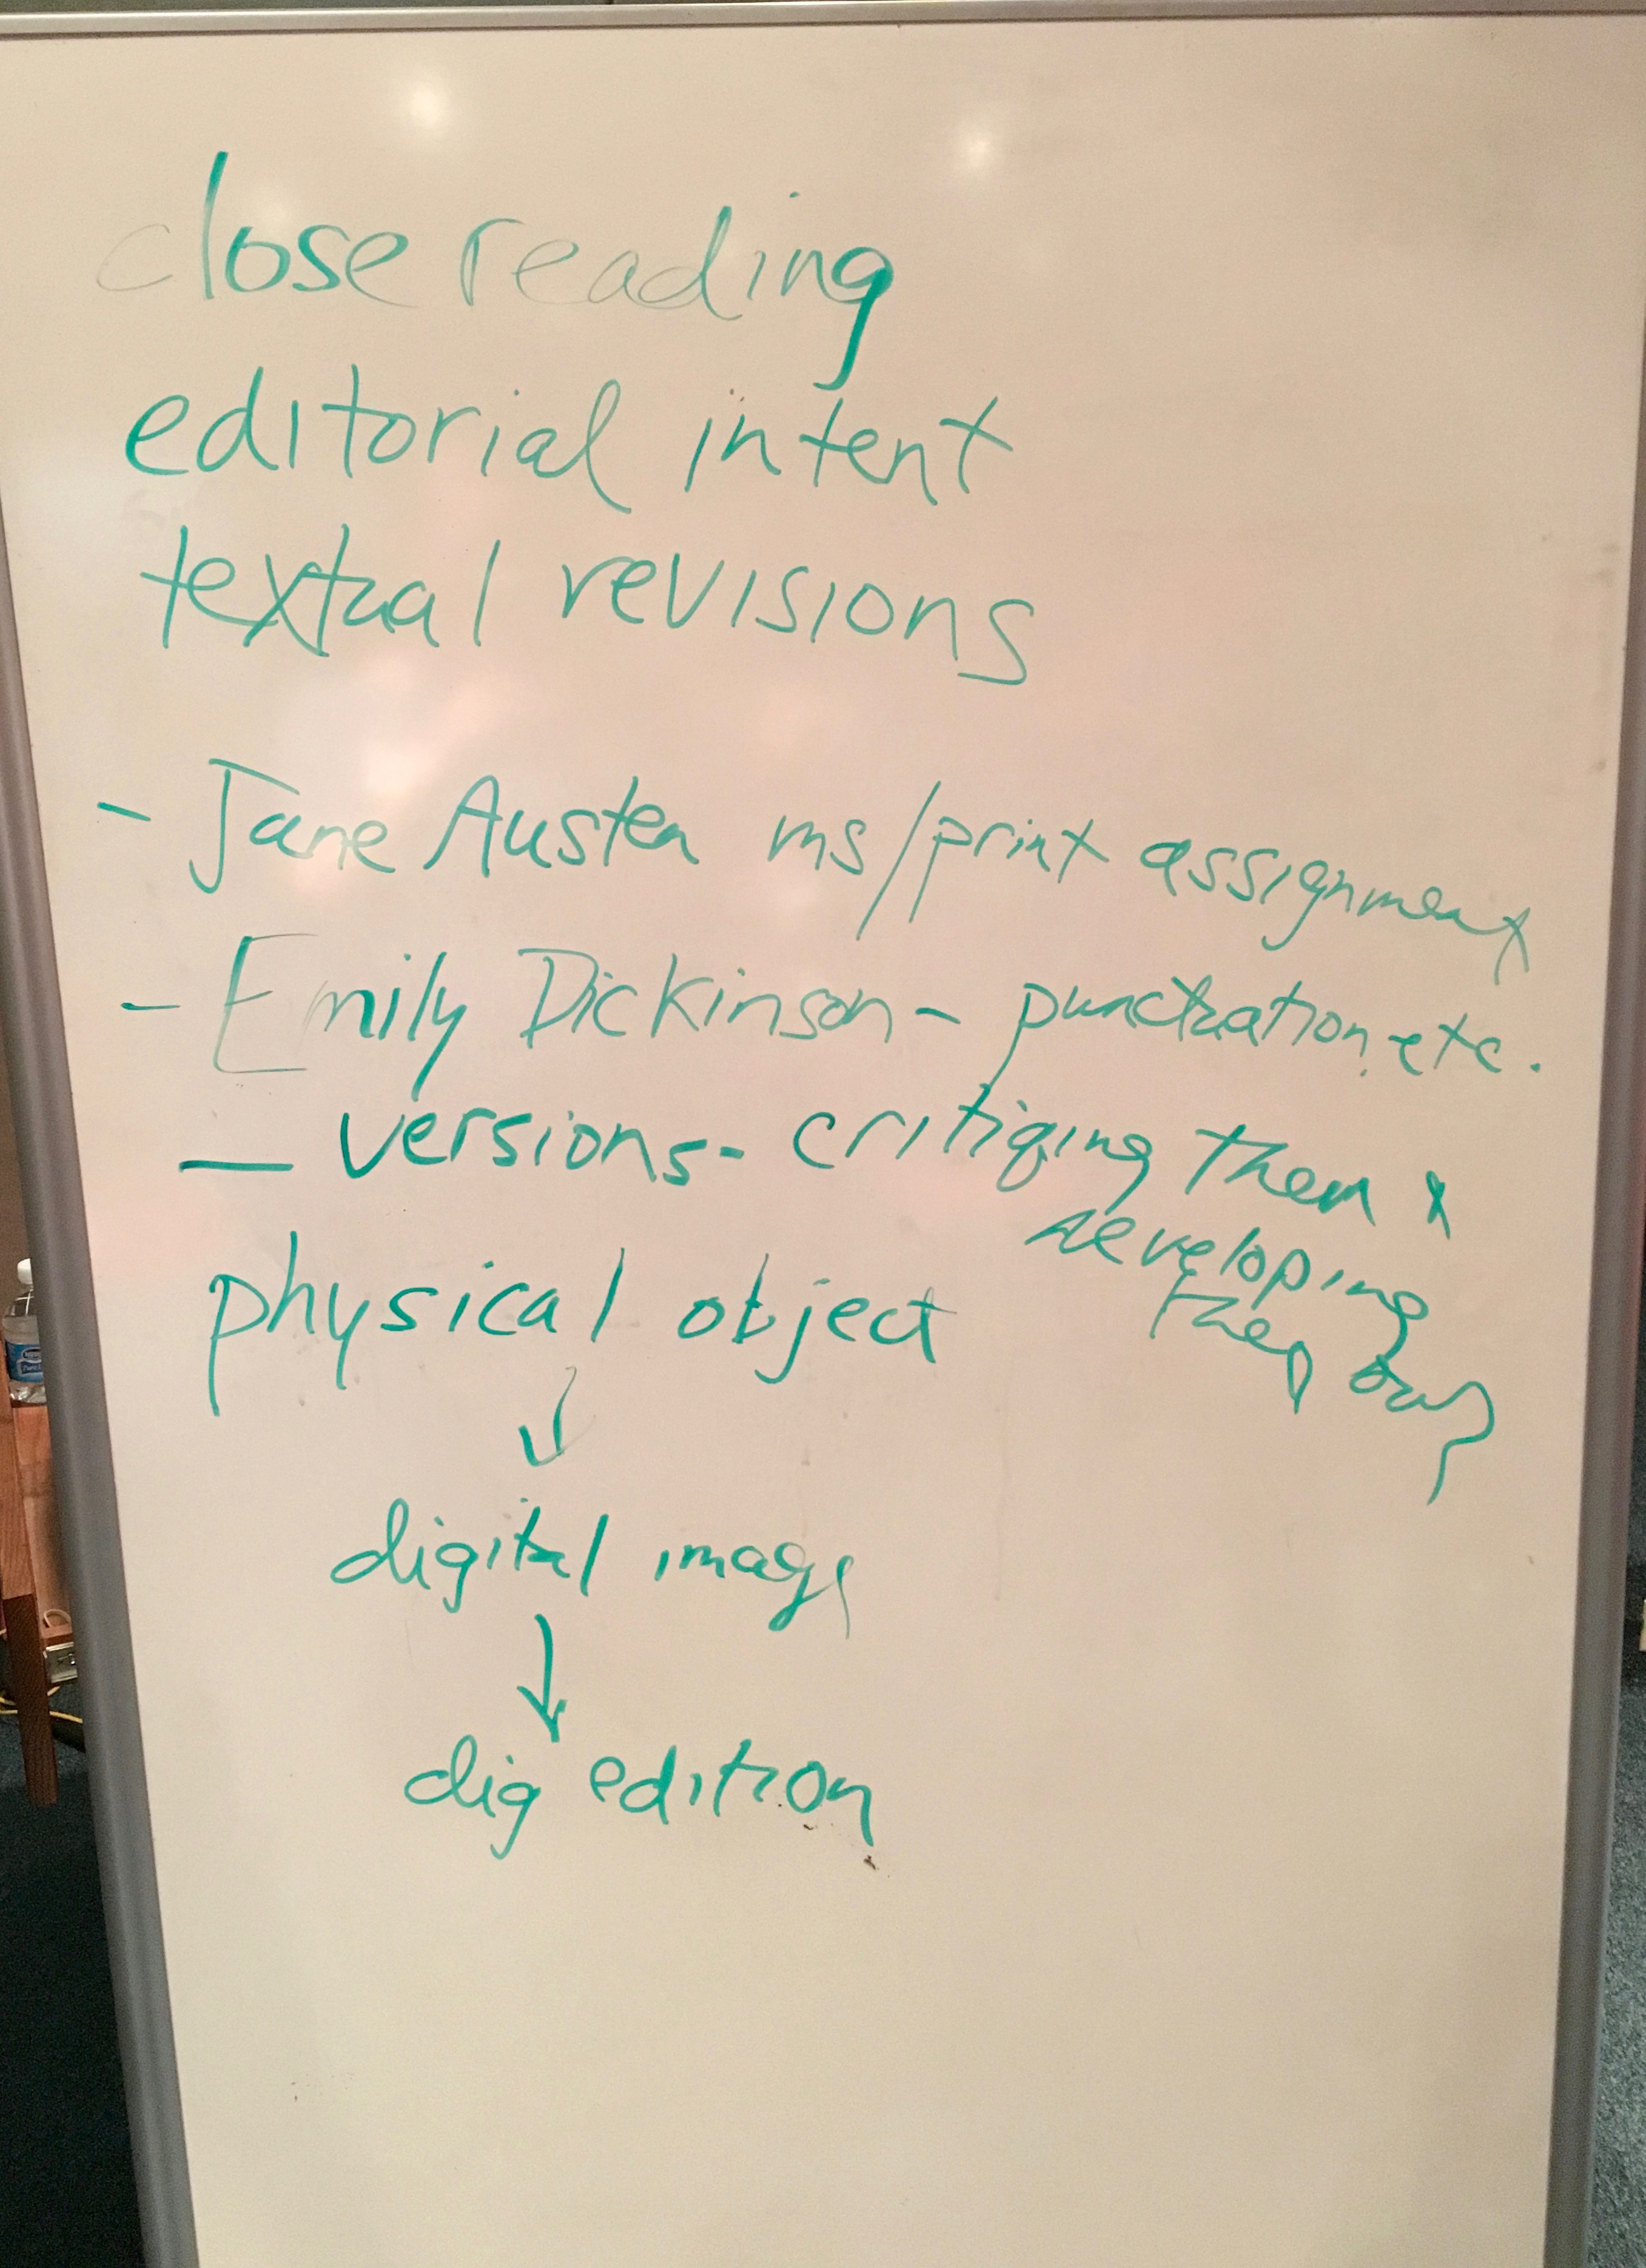 close reading
editorial intent
textual revisions
- Jane Austen ms/print assignment
- Emily Dickinson - punctuation, etc.
— versions - critiqing them &
developing
their own
physical object
↓
digital image
↓
dig edition